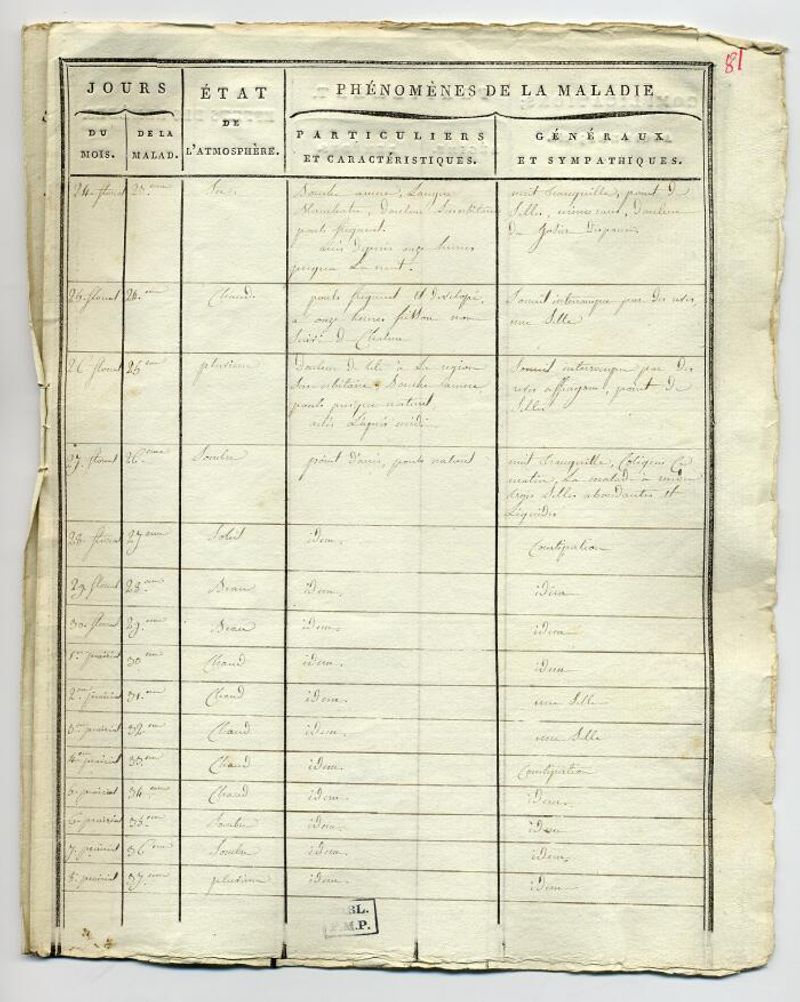 81
JOURS
ÉTAT
DE
L'ATMOSPHÈRE.
PHÉNOMÈNES DE LA MALADIE
DU
MOIS.
DE LA
MALAD.
PARTICULIERS
ET CARACTÉRISTIQUES.
GÉNÉRAUX
ET SYMPATHIQUES.
24. floreal
Bouche amere, Langue
Douleur Susorbitaire
pouls frequent.
accès depuis onze heures
la nuit.
nuit tranquille, point de
Selles, Douleur
du Gosier Disparue.
floreal
Chaud
pouls frequent et developé,
à onze heures frisson non
Suivi de Chaleur
Someil interrompu par des reves
une Selle
floreal
pluvieux
Douleur de tête à La region
Susorbitaire, Bouche amere
pouls presque naturel,
midi.
Someil interrompu par des
reves point de
Selles
27. floreal
26.eme
Sombre
point d'accès, pouls naturel
nuit tranquille, Coliques Ce
matin, La malade a
trois Selles abondantes et
Liquides
28. floreal
27 eme
Soleil
idem.
Constipation
29. floreal
28.eme
Beau
idem.
idem
30. floreal
29.eme
Beau
idem.
idem
1er prairial
30 eme
Chaud
idem.
idem
2.me prairial
31.eme
Chaud
idem.
une Selle
3.me prairial
32 eme
Chaud
idem.
une Selle
4.me prairial
33.eme
Chaud
idem.
Constipation
5. prairial
34 eme
Chaud
idem.
idem.
6. prairial
35.eme
Sombre
idem.
idem
7. prairial
36 eme
Sombre
idem.
idem.
8. prairial
37.eme
pluvieux
idem.
idem
BL.
P.M.P.